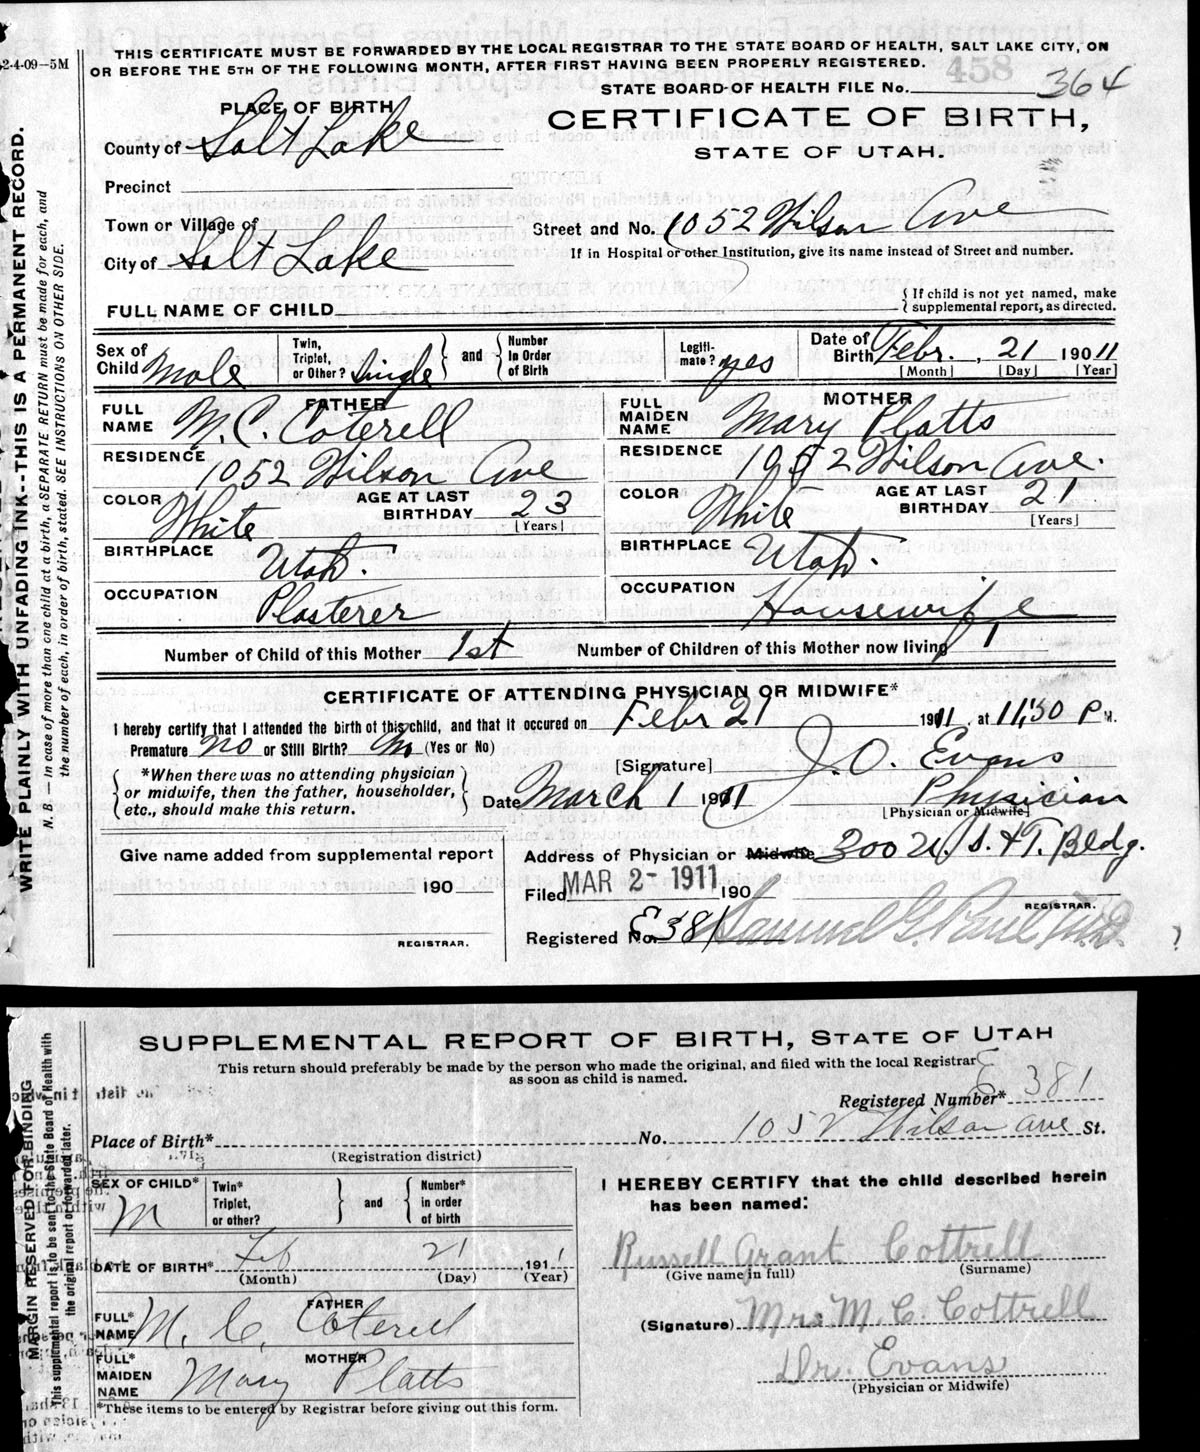 THIS CERTIFICATE MUST BE FORWARDED BY THE LOCAL REGISTRAR TO THE STATE BOARD OF HEALTH, SALT LAKE CITY, ON
OR BEFORE THE 5TH OF THE FOLLOWING MONTH, AFTER FIRST HAVING BEEN PROPERLY REGISTERED.
2-4-09—5M
458
STATE BOARD OF HEALTH FILE No. 364
PLACE OF BIRTH
CERTIFICATE OF BIRTH,
STATE OF UTAH.
County of Salt Lake
Precinct
Town or Village of
Street and No. 1052 Wilson Ave
City of Salt Lake
If in Hospital or other Institution, give its name instead of Street and number.
FULL NAME OF CHILD
{If child is not yet named, make supplemental report, as directed.
Sex of Child Male
Twin, Triplet, or Other? Single
and
Number In Order of Birth
Legitimate? yes
Date of Birth Febr. , 21 190 11
[Month] [Day] [Year]
FATHER
FULL NAME M. C. Coterell
RESIDENCE 1052 Wilson Ave
COLOR White
AGE AT LAST BIRTHDAY 23
[Years]
BIRTHPLACE Utah.
OCCUPATION Plasterer
MOTHER
FULL MAIDEN NAME Mary Platts
RESIDENCE 1052 Wilson Ave.
COLOR White
AGE AT LAST BIRTHDAY 21
[Years]
BIRTHPLACE Utah.
OCCUPATION Housewife
Number of Child of this Mother 1st
Number of Children of this Mother now living 1
CERTIFICATE OF ATTENDING PHYSICIAN OR MIDWIFE*
I hereby certify that I attended the birth of this child, and that it occured on Febr 21 1911, at 11,30 P M.
Premature no or Still Birth? no (Yes or No)
[Signature] J. O. Evans
Physician
[Physician or Midwife]
*When there was no attending physician
or midwife, then the father, householder,
etc., should make this return.
Date March 1 1911
Give name added from supplemental report
190
REGISTRAR.
Address of Physician or Midwife 300 U. S. & T. Bldg.
Filed MAR 2- 1911 190
REGISTRAR.
Registered No. E381 Samuel G. Paul M.D.
?
WRITE PLAINLY WITH UNFADING INK--THIS IS A PERMANENT RECORD.
N. B. — In case of more than one child at a birth, a SEPARATE RETURN must be made for each, and
the number of each, in order of birth, stated. SEE INSTRUCTIONS ON OTHER SIDE.
SUPPLEMENTAL REPORT OF BIRTH, STATE OF UTAH
This return should preferably be made by the person who made the original, and filed with the local Registrar
as soon as child is named.
Registered Number* E 381
Place of Birth* No. 1052 Wilson ave St.
(Registration district)
SEX OF CHILD* M
Twin* Triplet, or other?
and
Number* in order of birth
DATE OF BIRTH* Feb 21 , 1911
(Month) (Day) (Year)
FATHER
FULL* NAME M. C. Coterell
MOTHER
FULL* MAIDEN NAME Mary Platts
*These items to be entered by Registrar before giving out this form.
I HEREBY CERTIFY that the child described herein
has been named:
Russell Grant Cottrell
(Give name in full) (Surname)
(Signature) Mrs. M. C. Cottrell
Dr. Evans
(Physician or Midwife)
MARGIN RESERVED FOR BINDING
This supplemental report is to be sent to the State Board of Health with
the original report if forwarded later.